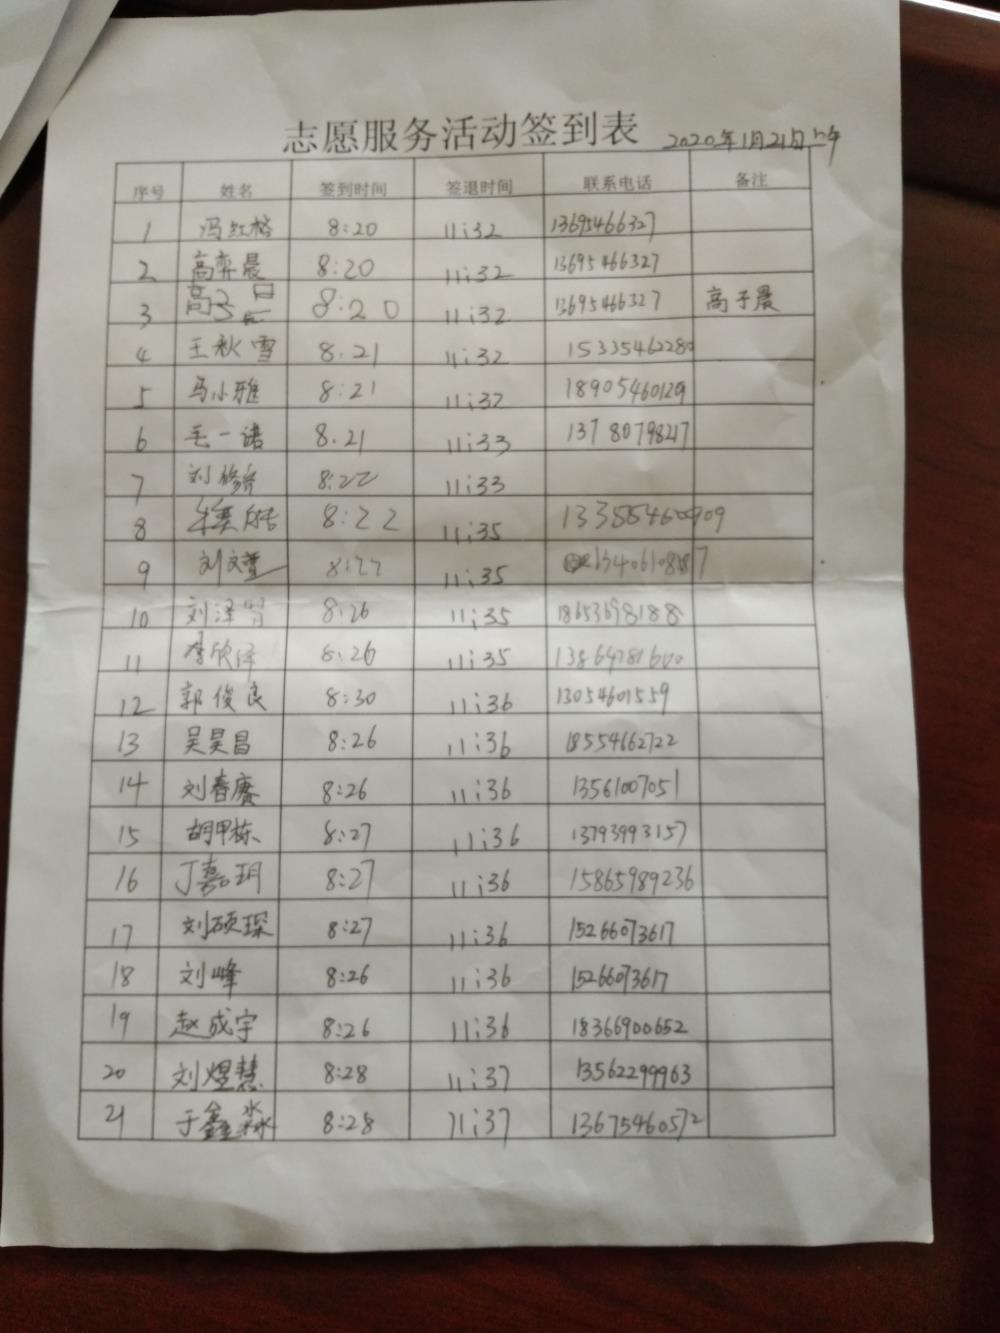 志愿服务活动签到表 2020年1月21日上午
序号 姓名 签到时间 签退时间 联系电话 备注
1 冯红榕 8:20 11:32 13695466327
2 高弈晨 8:20 11:32 13695466327
3 高子晨 8:20 11:32 13695466327 高子晨
4 王秋雪 8:21 11:32 15335462280
5 马小雅 8:21 11:32 18905460129
6 毛一诺 8:21 11:33 13780798217
7 刘 8:22 11:33
8 8:22 11:35 13355460909
9 刘文萱 8:22 11:35
10 刘泽 8:26 11:35 18653698188
11 李欣泽 8:26 11:35
12 郭俊良 8:30 11:36 13054601559
13 吴昊昌 8:26 11:36 18554662722
14 刘春赓 8:26 11:36 13561007051
15 胡甲栋 8:27 11:36 13793993157
16 丁嘉玥 8:27 11:36 15865989236
17 刘硕琛 8:27 11:36 15266073617
18 刘峰 8:26 11:36 15266073617
19 赵成宇 8:26 11:36 18366900652
20 刘煜慧 8:28 11:37 13562299963
21 于鑫淼 8:28 11:37 13675460572